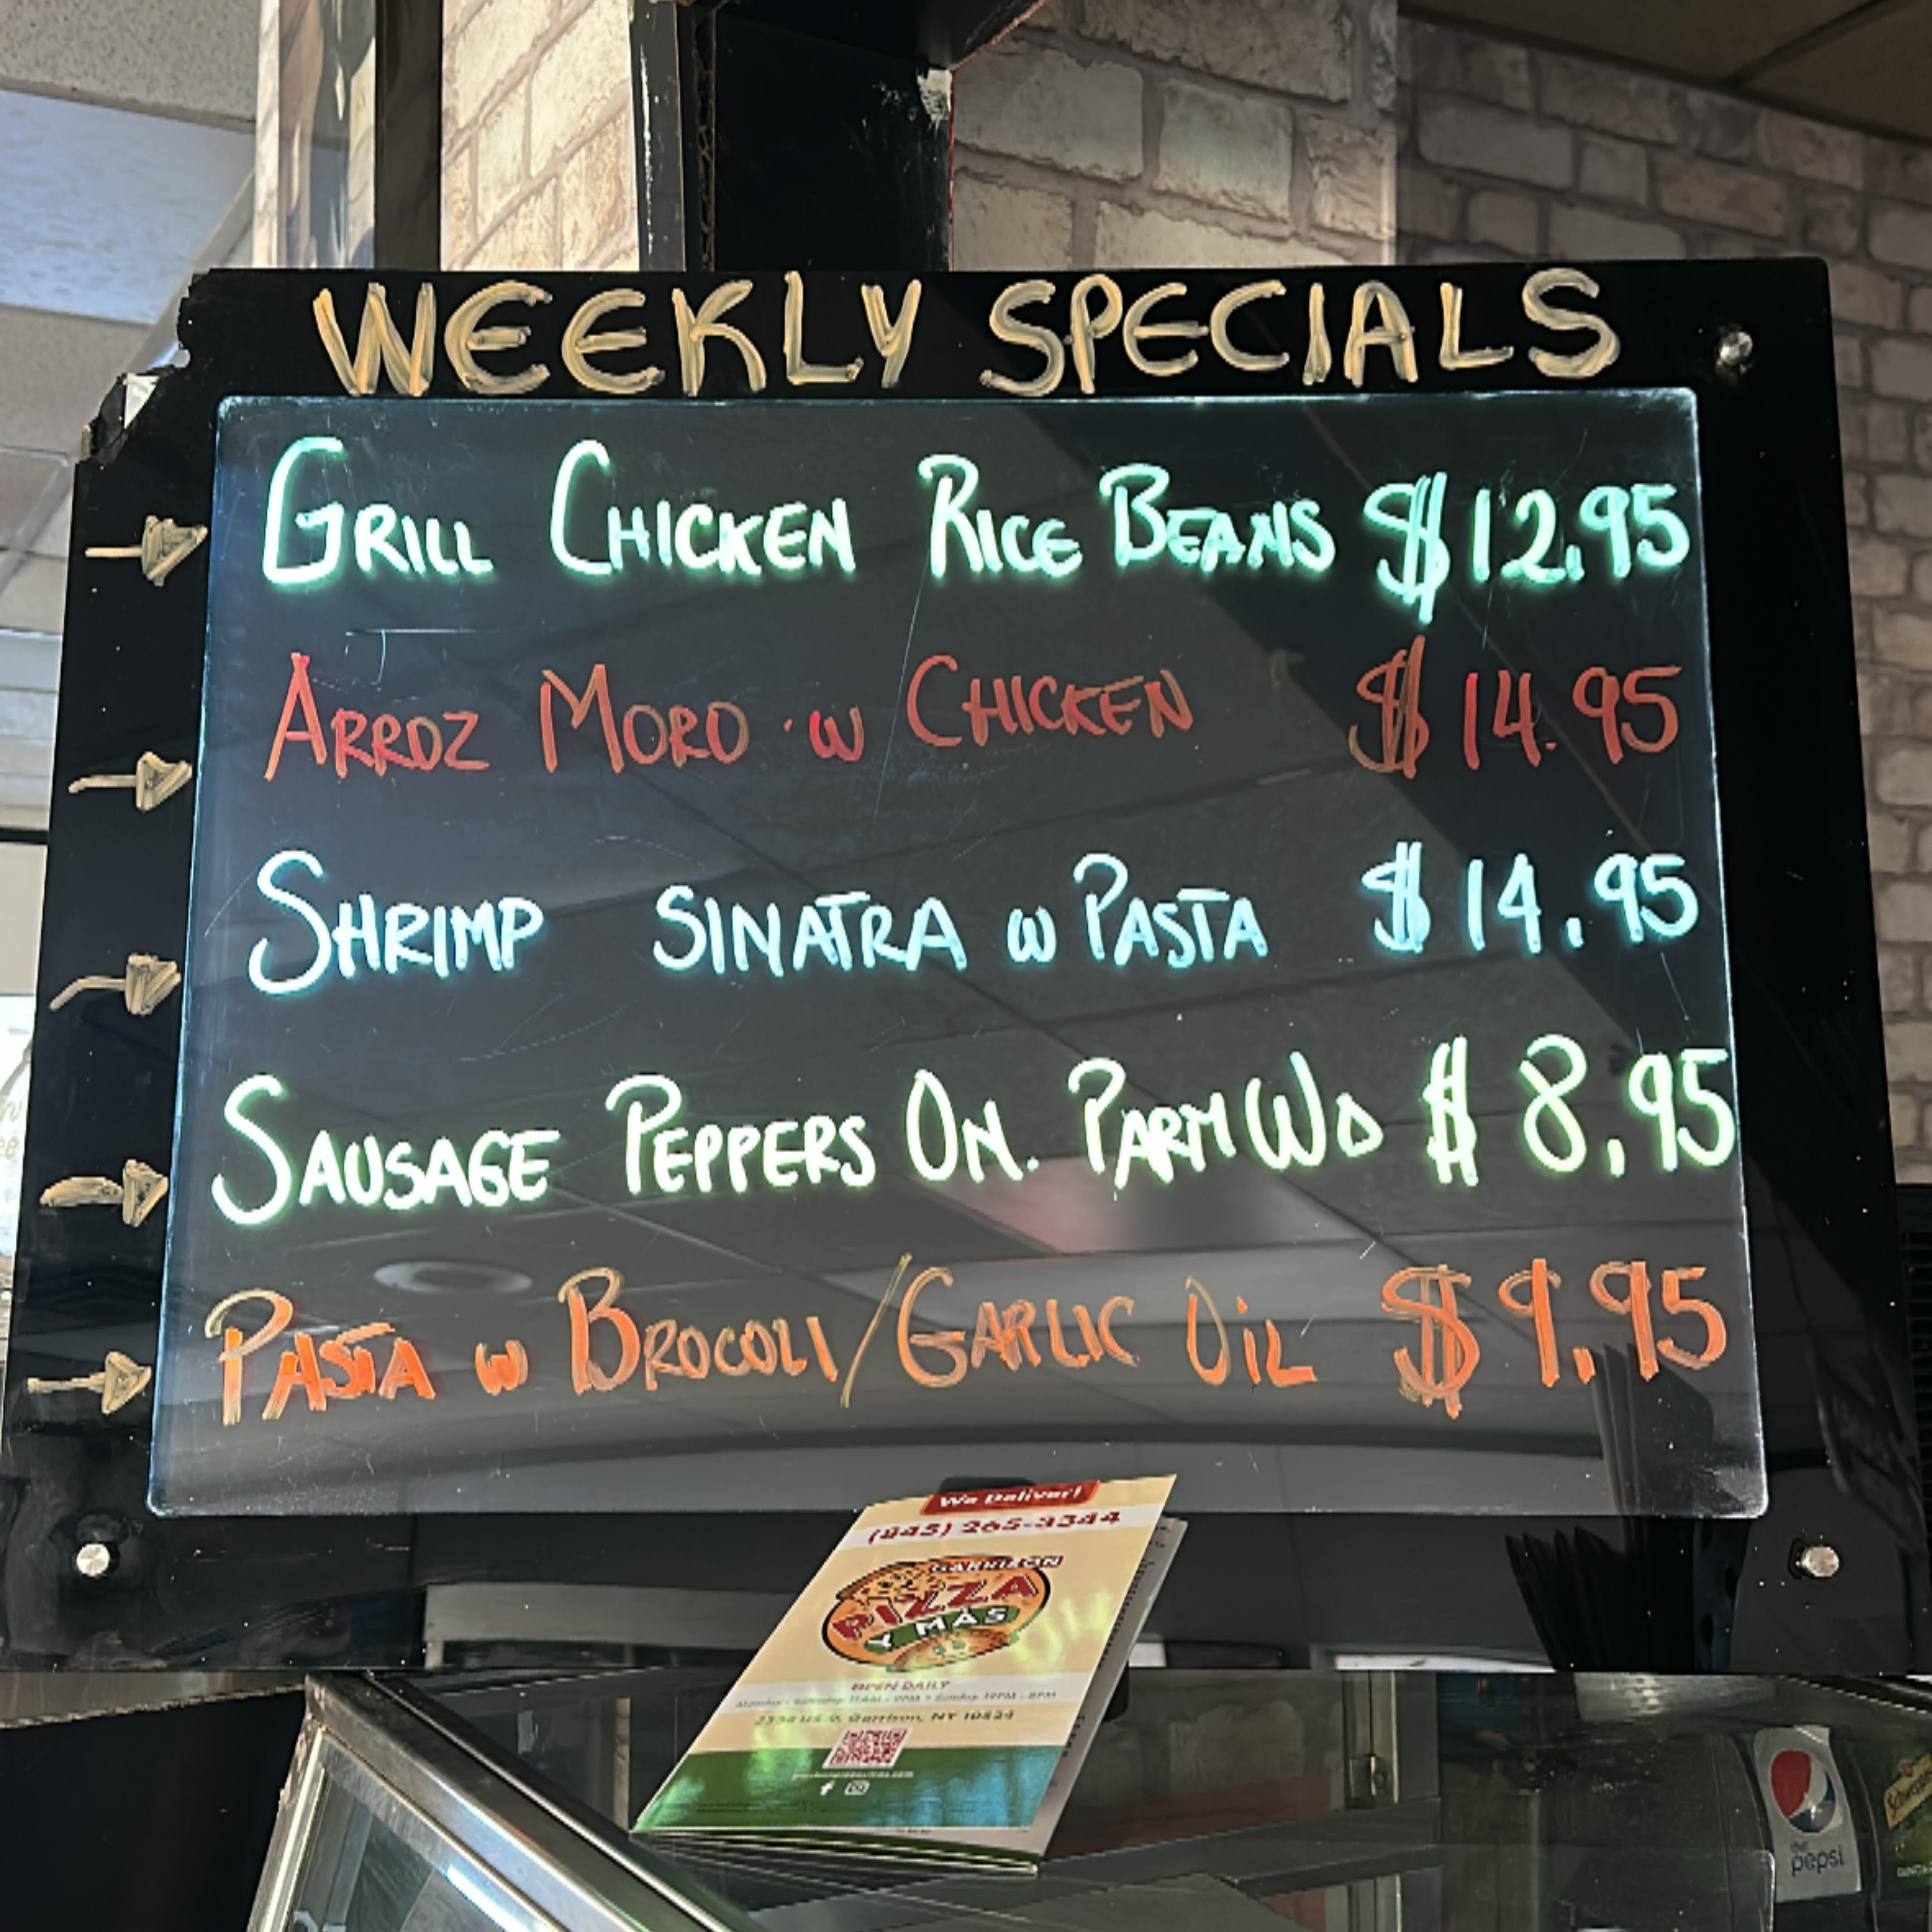 WEEKLY SPECIALS
GRILL CHICKEN RICE BEANS $12.95
ARROZ MORO w CHICKEN $14.95
SHRIMP SINATRA w PASTA $14.95
SAUSAGE PEPPERS ON. PARM WD $8.95
PASTA w BROCOLI/GARLIC OiL $9.95
We Deliver!
(845) 265-3344
GARRISON
PIZZA
Y MÁS
OPEN DAILY
Monday - Saturday 11AM - 9PM • Sunday 12PM - 8PM
Garrison, NY 10524
the
pepsi